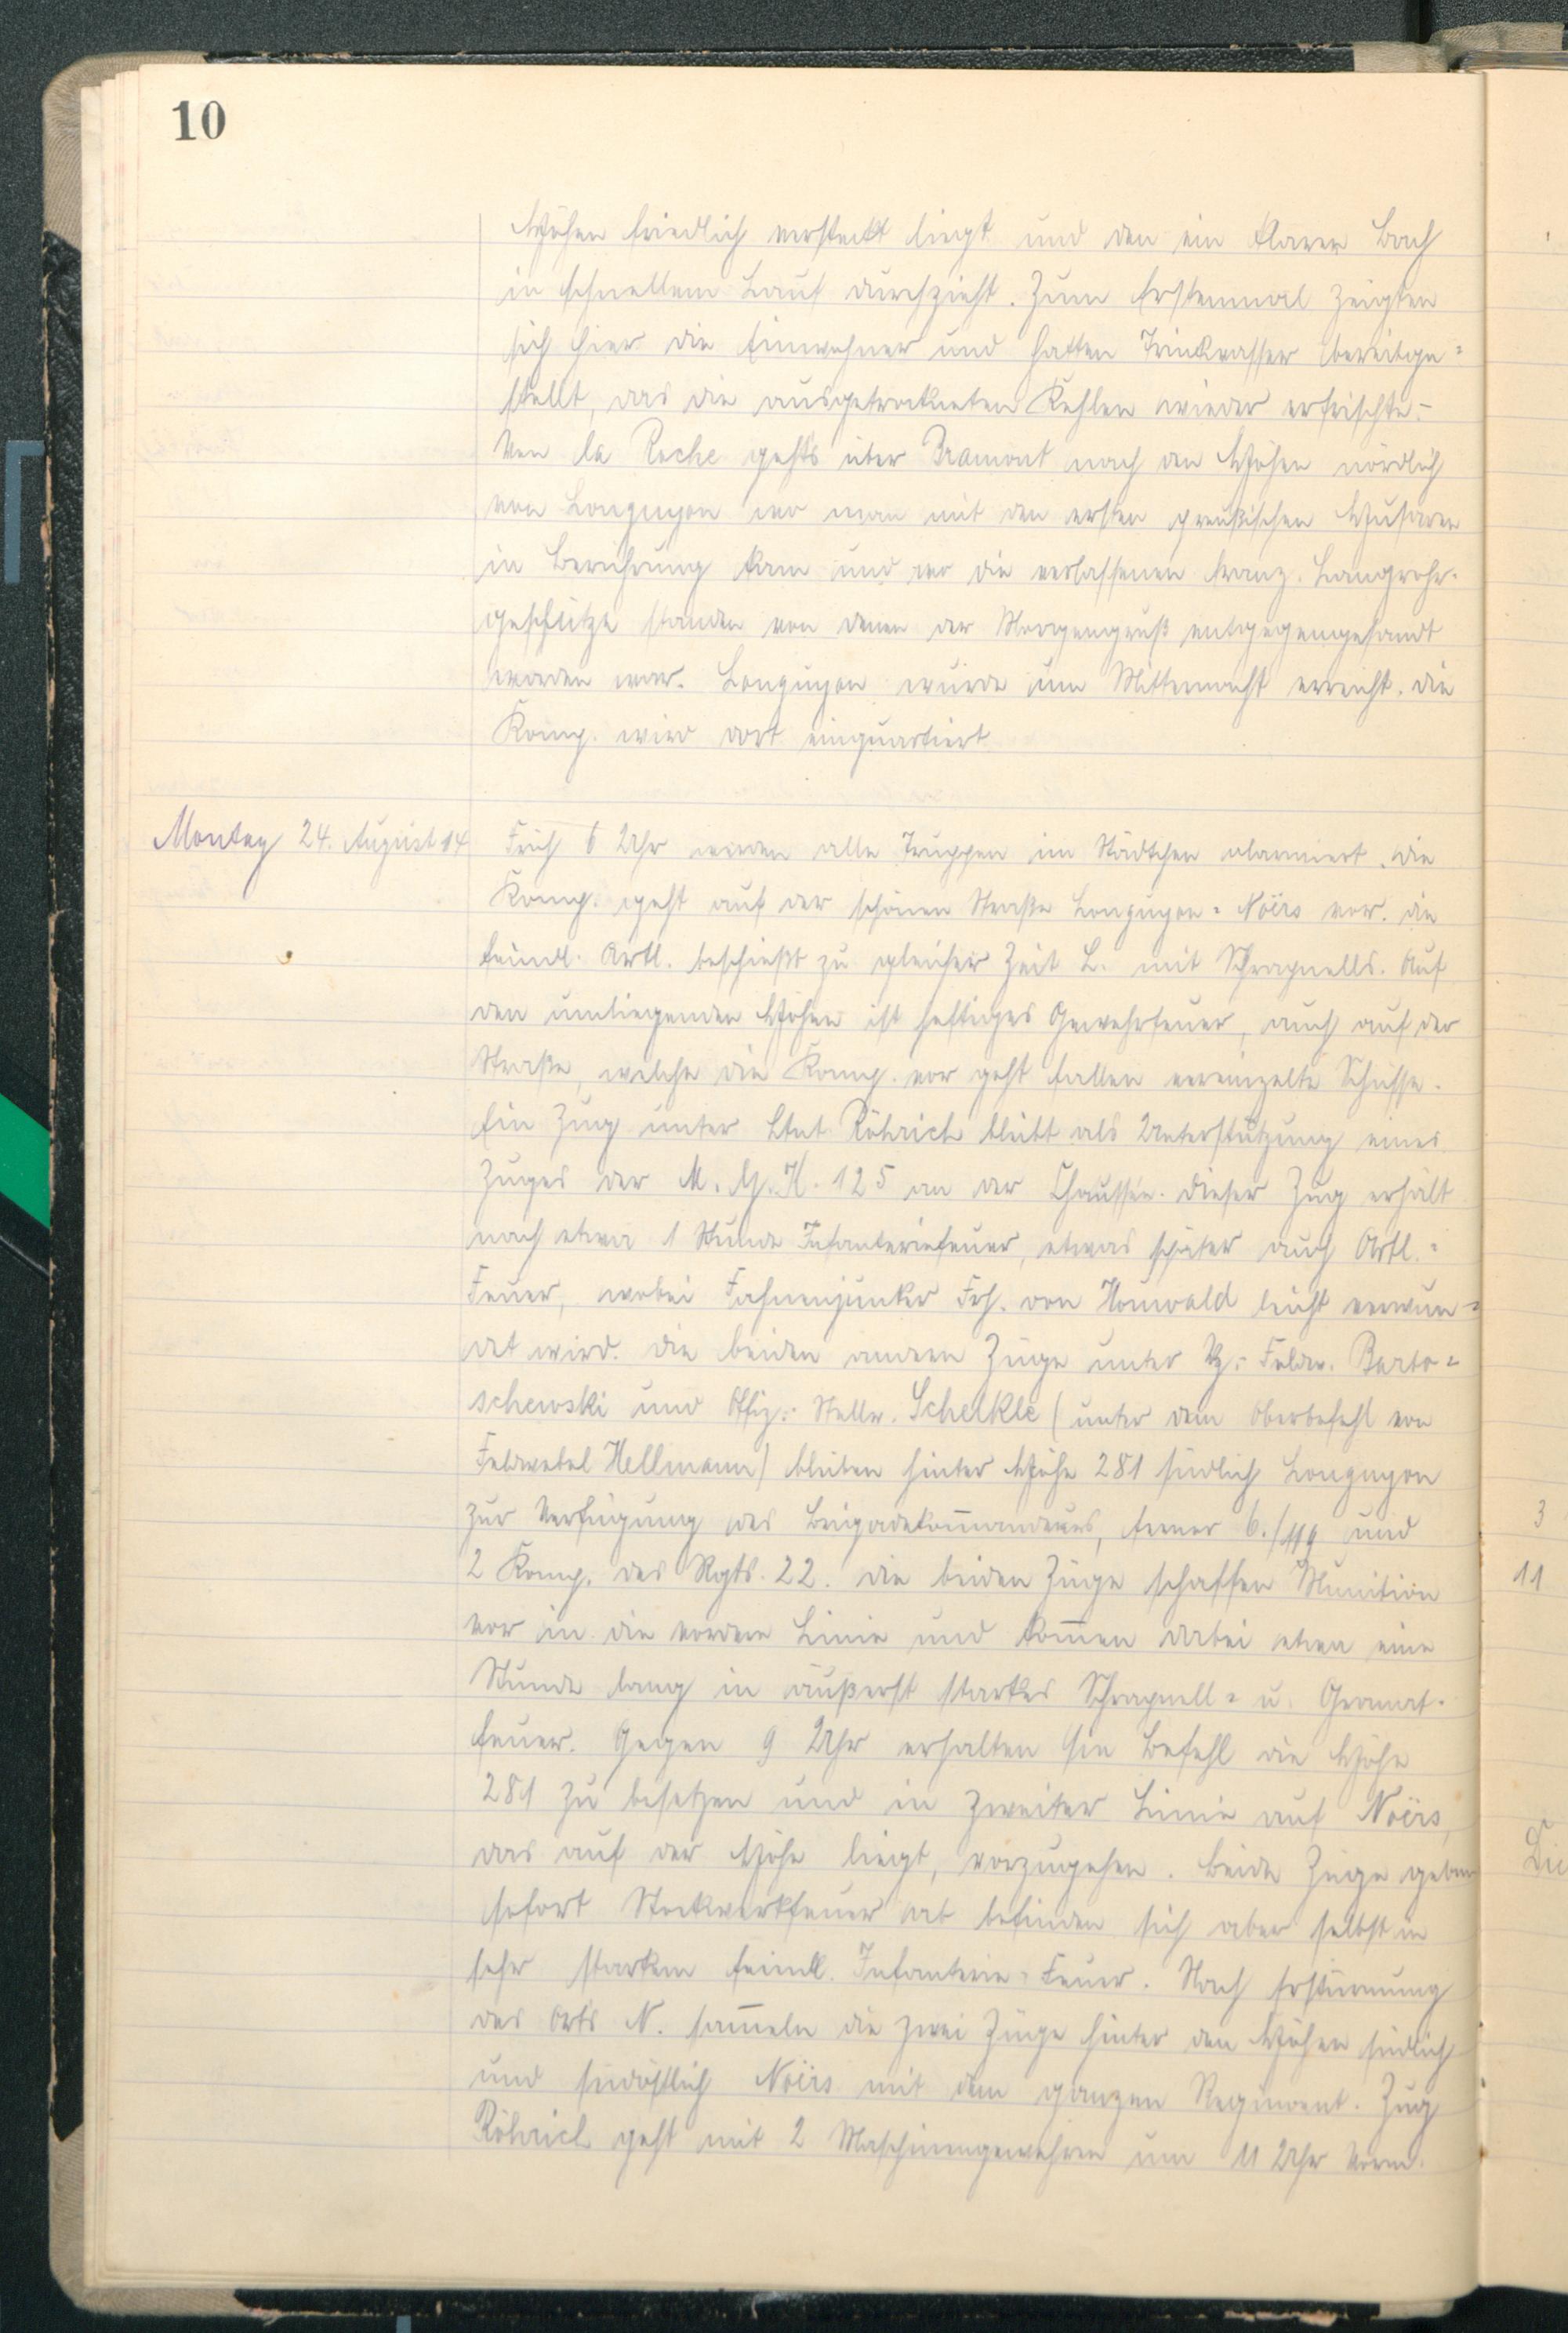 10
Höhen friedlich versteckt liegt und den ein klarer Bach
in schnellem Lauf durchzieht. Zum Erstenmal zeigten
sich hier die Einwohner und hatten Trinkwasser bereitge=
stellt, das die ausgetrockneten Kehlen wieder erfrischte.-
Von la Roche gehts über Bramont nach den Höhen nördlich
von Longuyon wo man mit den ersten preußischen Husaren
in Berührung kam und wo die verlassenen franz. Langrohr-
geschütze standen von denen der Morgengruß entgegengesandt
worden war. Longuyon wurde um Mitternacht erreicht. die
Komp. wird dort einquartiert
Montag 24. August 14
Früh 6 Uhr wurden alle Truppen im Städtchen alarmiert. Die
Komp. geht auf der schönen Straße Longuyon = Noërs vor. die
feindl. Artl. beschießt zu gleicher Zeit L. mit Schrapnells. Auf
den umliegenden Höhen ist heftiges Gewehrfeuer, auch auf der
Straße, welche die Komp. vor geht fallen vereinzelte Schüsse.
Ein Zug unter Ltnt Röhrich bleibt als Unterstützung eines
Zuges der M.G.K. 125 an der Chaussée. Dieser Zug erhält
nach etwa 1 Stunde Infanteriefeuer, etwas später auch Artl.=
Feuer, wobei Fahnenjunker Frh. von Houwald leicht verwun=
det wird. Die beiden andern Züge unter Vz: Feldw. Barto=
schewski und Offiz.: Stellv. Schelkle (unter dem Oberbefehl von
Feldwebel Hellmann) bleiben hinter Höhe 281 südlich Longuyon
zur Verfügung des Brigadekom̄andeurs, ferner 6./119 und
2 Komp. des Rgts. 22. die beiden Züge schaffen Munition
vor in die vordere Linie und kom̄en dabei etwa eine
Stunde lang in äußerst starkes Schrapnell = u. Granat-
feuer. Gegen 9 Uhr erhalten sie Befehl die Höhe
281 zu besetzen und in zweiter Linie auf Noërs,
das auf der Höhe liegt, vorzugehen. Beide Züge geben
sofort Stockwerkfeuer ab befinden sich aber selbst in
sehr starkem feindl. Infanterie = Feuer. Nach Erstürmung
des Orts N. sam̄eln die zwei Züge hinter den Höhen südlich
und südöstlich Noërs mit dem ganzen Regiment. Zug
Röhrich geht mit 2 Maschinengewehren um 11 Uhr Vorm.
3
11